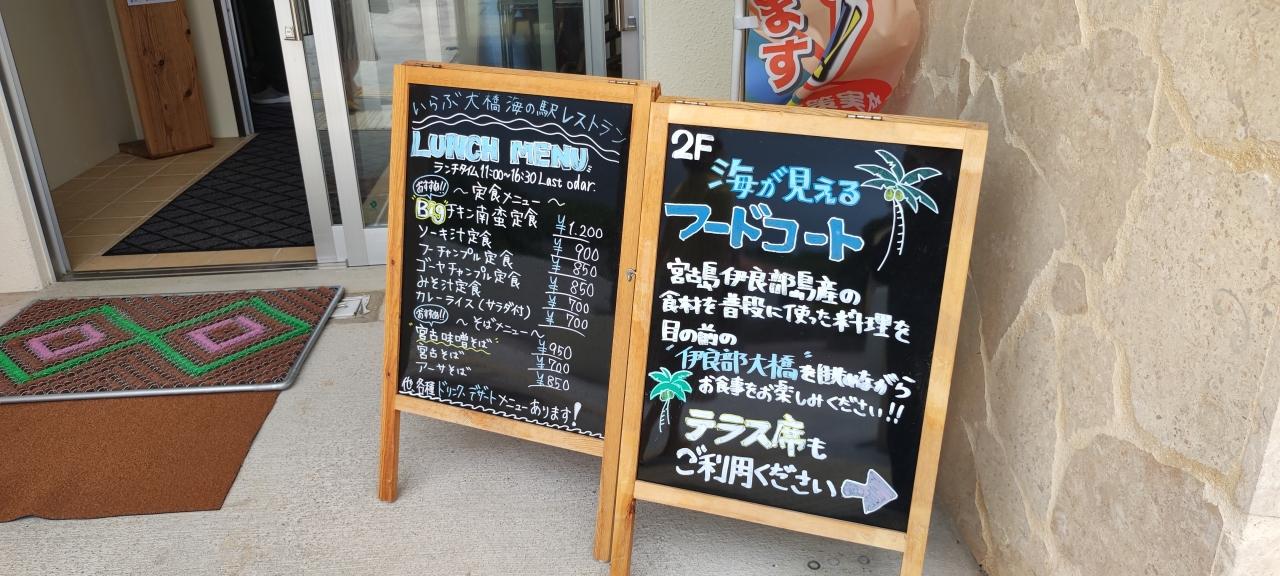 ます
いらぶ大橋海の駅レストラン
LUNCH MENU
ランチタイム11:00~16:30 Last odar.
おすすめ!! ~定食メニュー~
Bigチキン南蛮定食 ¥1.200
ソーキ汁定食 ¥900
フーチャンプル定食 ¥850
ゴーヤチャンプル定食 ¥850
みそ汁定食 ¥700
カレーライス(サラダ付) ¥700
おすすめ!! ~そばメニュー~
宮古味噌そば ¥950
宮古そば ¥700
アーサそば ¥850
他各種ドリンク.デザートメニューあります!
2F
海が見える
フードコート
宮古島伊良部島産の
食材を普段に使った料理を
目の前の
"伊良部大橋"を眺めながら
お食事をお楽しみください!!
テラス席も
ご利用ください